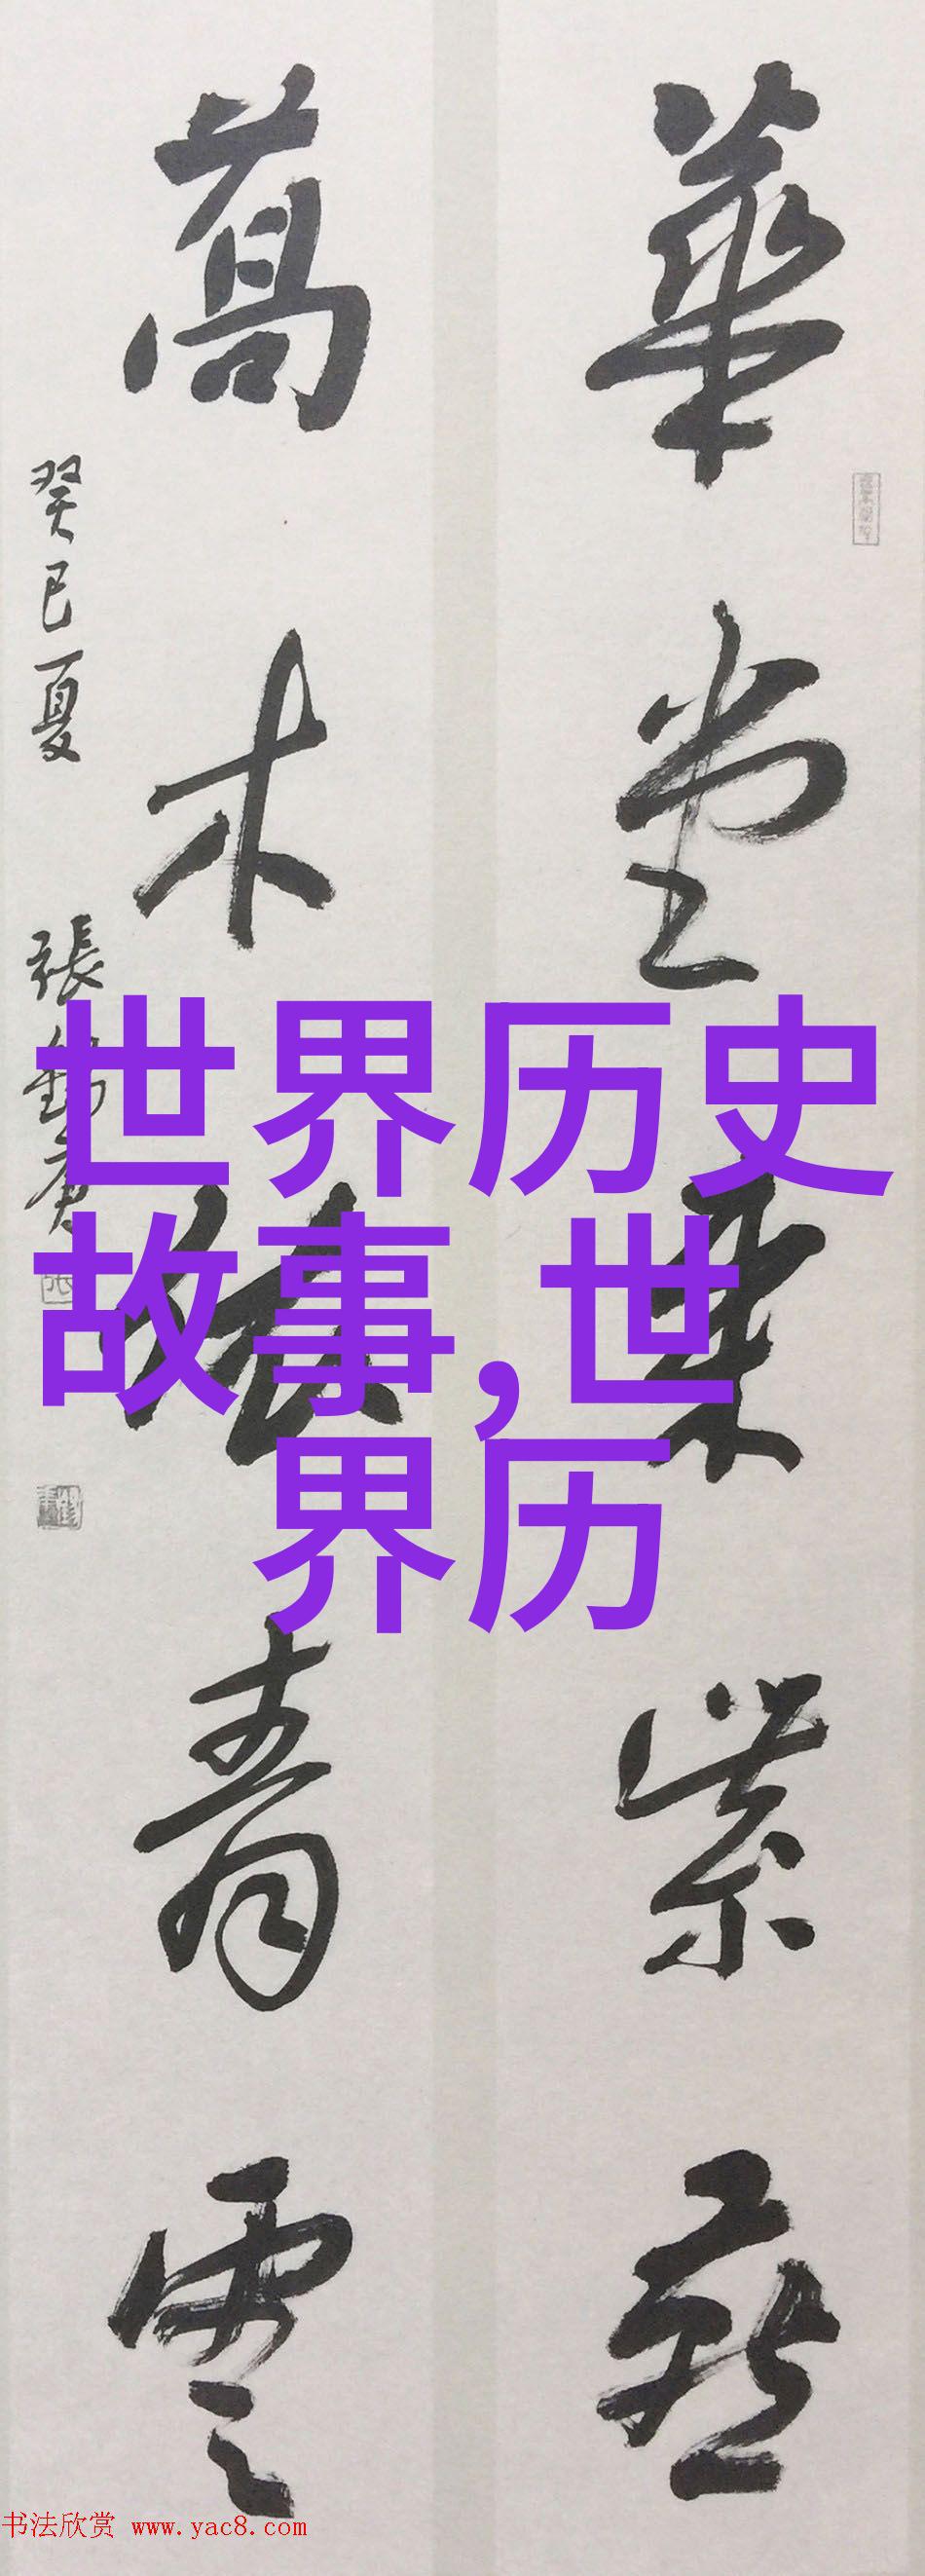 華堂紫燕
木青雲
癸巳夏 張錫庚
世界历史
故事,世
界历
书法欣赏 www.yac8.com